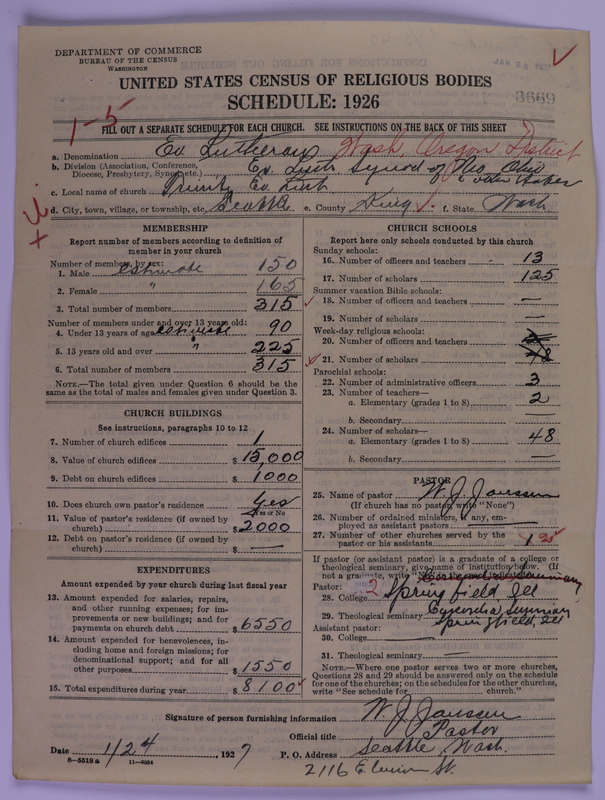 DEPARTMENT OF COMMERCE
BUREAU OF THE CENSUS
WASHINGTON
UNITED STATES CENSUS OF RELIGIOUS BODIES
SCHEDULE: 1926
3669
1-5
FILL OUT A SEPARATE SCHEDULE FOR EACH CHURCH. SEE INSTRUCTIONS ON THE BACK OF THIS SHEET
a. Denomination Ev. Lutheran Wash. Oregon District
b. Division (Association, Conference, Diocese, Presbytery, Synod, etc.) Ev. Luth Synod of Mo. Ohio & other States
c. Local name of church Trinity Ev. Luth
d. City, town, village, or township, etc. Seattle e. County King f. State Wash
MEMBERSHIP
Report number of members according to definition of member in your church
Number of members, by sex:
1. Male estimate 150
2. Female " 165
3. Total number of members 315
Number of members under and over 13 years old:
4. Under 13 years of age estimate 90
5. 13 years old and over " 225
6. Total number of members 315
NOTE.—The total given under Question 6 should be the same as the total of males and females given under Question 3.
CHURCH BUILDINGS
See instructions, paragraphs 10 to 12
7. Number of church edifices 1
8. Value of church edifices $ 15,000
9. Debt on church edifices $ 1000
10. Does church own pastor's residence Yes
Yes or No
11. Value of pastor's residence (if owned by church) $ 2000
12. Debt on pastor's residence (if owned by church) $ —
EXPENDITURES
Amount expended by your church during last fiscal year
13. Amount expended for salaries, repairs, and other running expenses; for improvements or new buildings; and for payments on church debt $ 6550
14. Amount expended for benevolences, including home and foreign missions; for denominational support; and for all other purposes $ 1550
15. Total expenditures during year $ 8100
CHURCH SCHOOLS
Report here only schools conducted by this church
Sunday schools:
16. Number of officers and teachers 13
17. Number of scholars 125
Summer vacation Bible schools:
18. Number of officers and teachers —
19. Number of scholars —
Week-day religious schools:
20. Number of officers and teachers
21. Number of scholars
Parochial schools:
22. Number of administrative officers 3
23. Number of teachers—
a. Elementary (grades 1 to 8) 2
b. Secondary —
24. Number of scholars—
a. Elementary (grades 1 to 8) 48
b. Secondary —
PASTOR
25. Name of pastor W. J. Janssen
(If church has no pastor, write "None")
26. Number of ordained ministers, if any, employed as assistant pastors —
27. Number of other churches served by the pastor or his assistants 1
If pastor (or assistant pastor) is a graduate of a college or theological seminary, give name of institution below. (If not a graduate, write "
Pastor:
28. College Springfield, Ill
29. Theological seminary Concordia Seminary Springfield, Ill
Assistant pastor:
30. College —
31. Theological seminary —
NOTE.—Where one pastor serves two or more churches, Questions 28 and 29 should be answered only on the schedule for one of the churches; on the schedules for the other churches, write "See schedule for church."
Signature of person furnishing information W. J. Janssen
Official title Pastor
Date 1/24 1927 P. O. Address Seattle, Wash.
8-5518 a 11-9054
2116 E St.